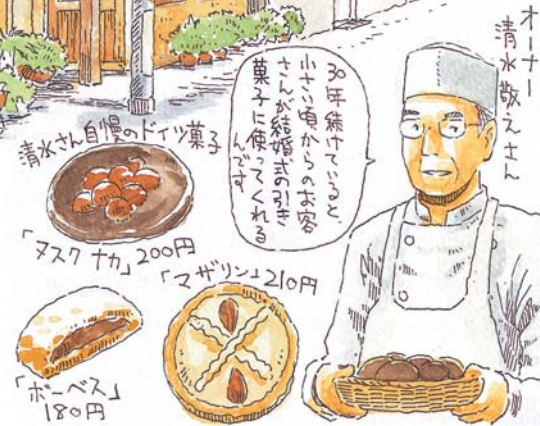 オーナー
清水 敬えさん
30年続けていると、
小さい頃からのお客
さんが結婚式の引き
菓子に使ってくれる
んです
清水さん自慢のドイツ菓子
「ヌスク ナカ」200円
「マザリン」210円
「ボーベス」
180円